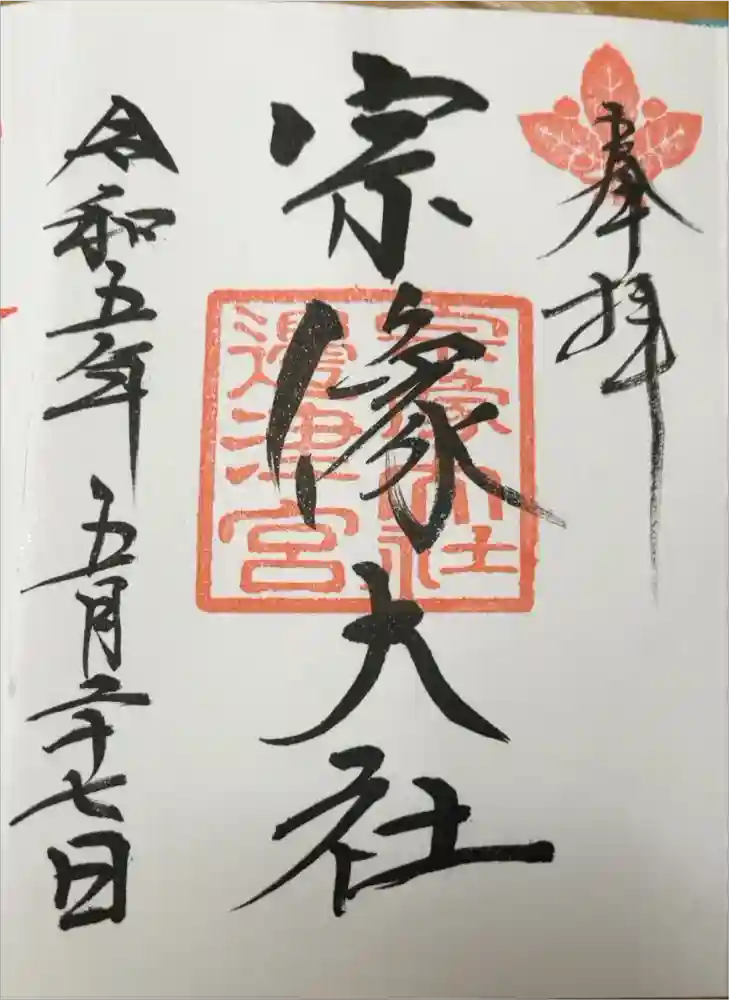 奉拝
宗像大社
宗像大社
邊津宮
令和五年 五月二十七日